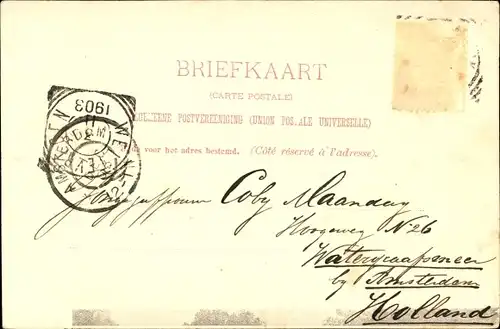 BRIEFKAART
(CARTE POSTALE)
ALGEMEENE POSTVEREENIGING (UNION POSTALE UNIVERSELLE)
voor het adres bestemd. (Côté réservé à l'adresse).
1903
AMSTERDAM
Coby Maandag
Hoogeweg N 26
Watergraafsmeer
by Amsterdam
Holland